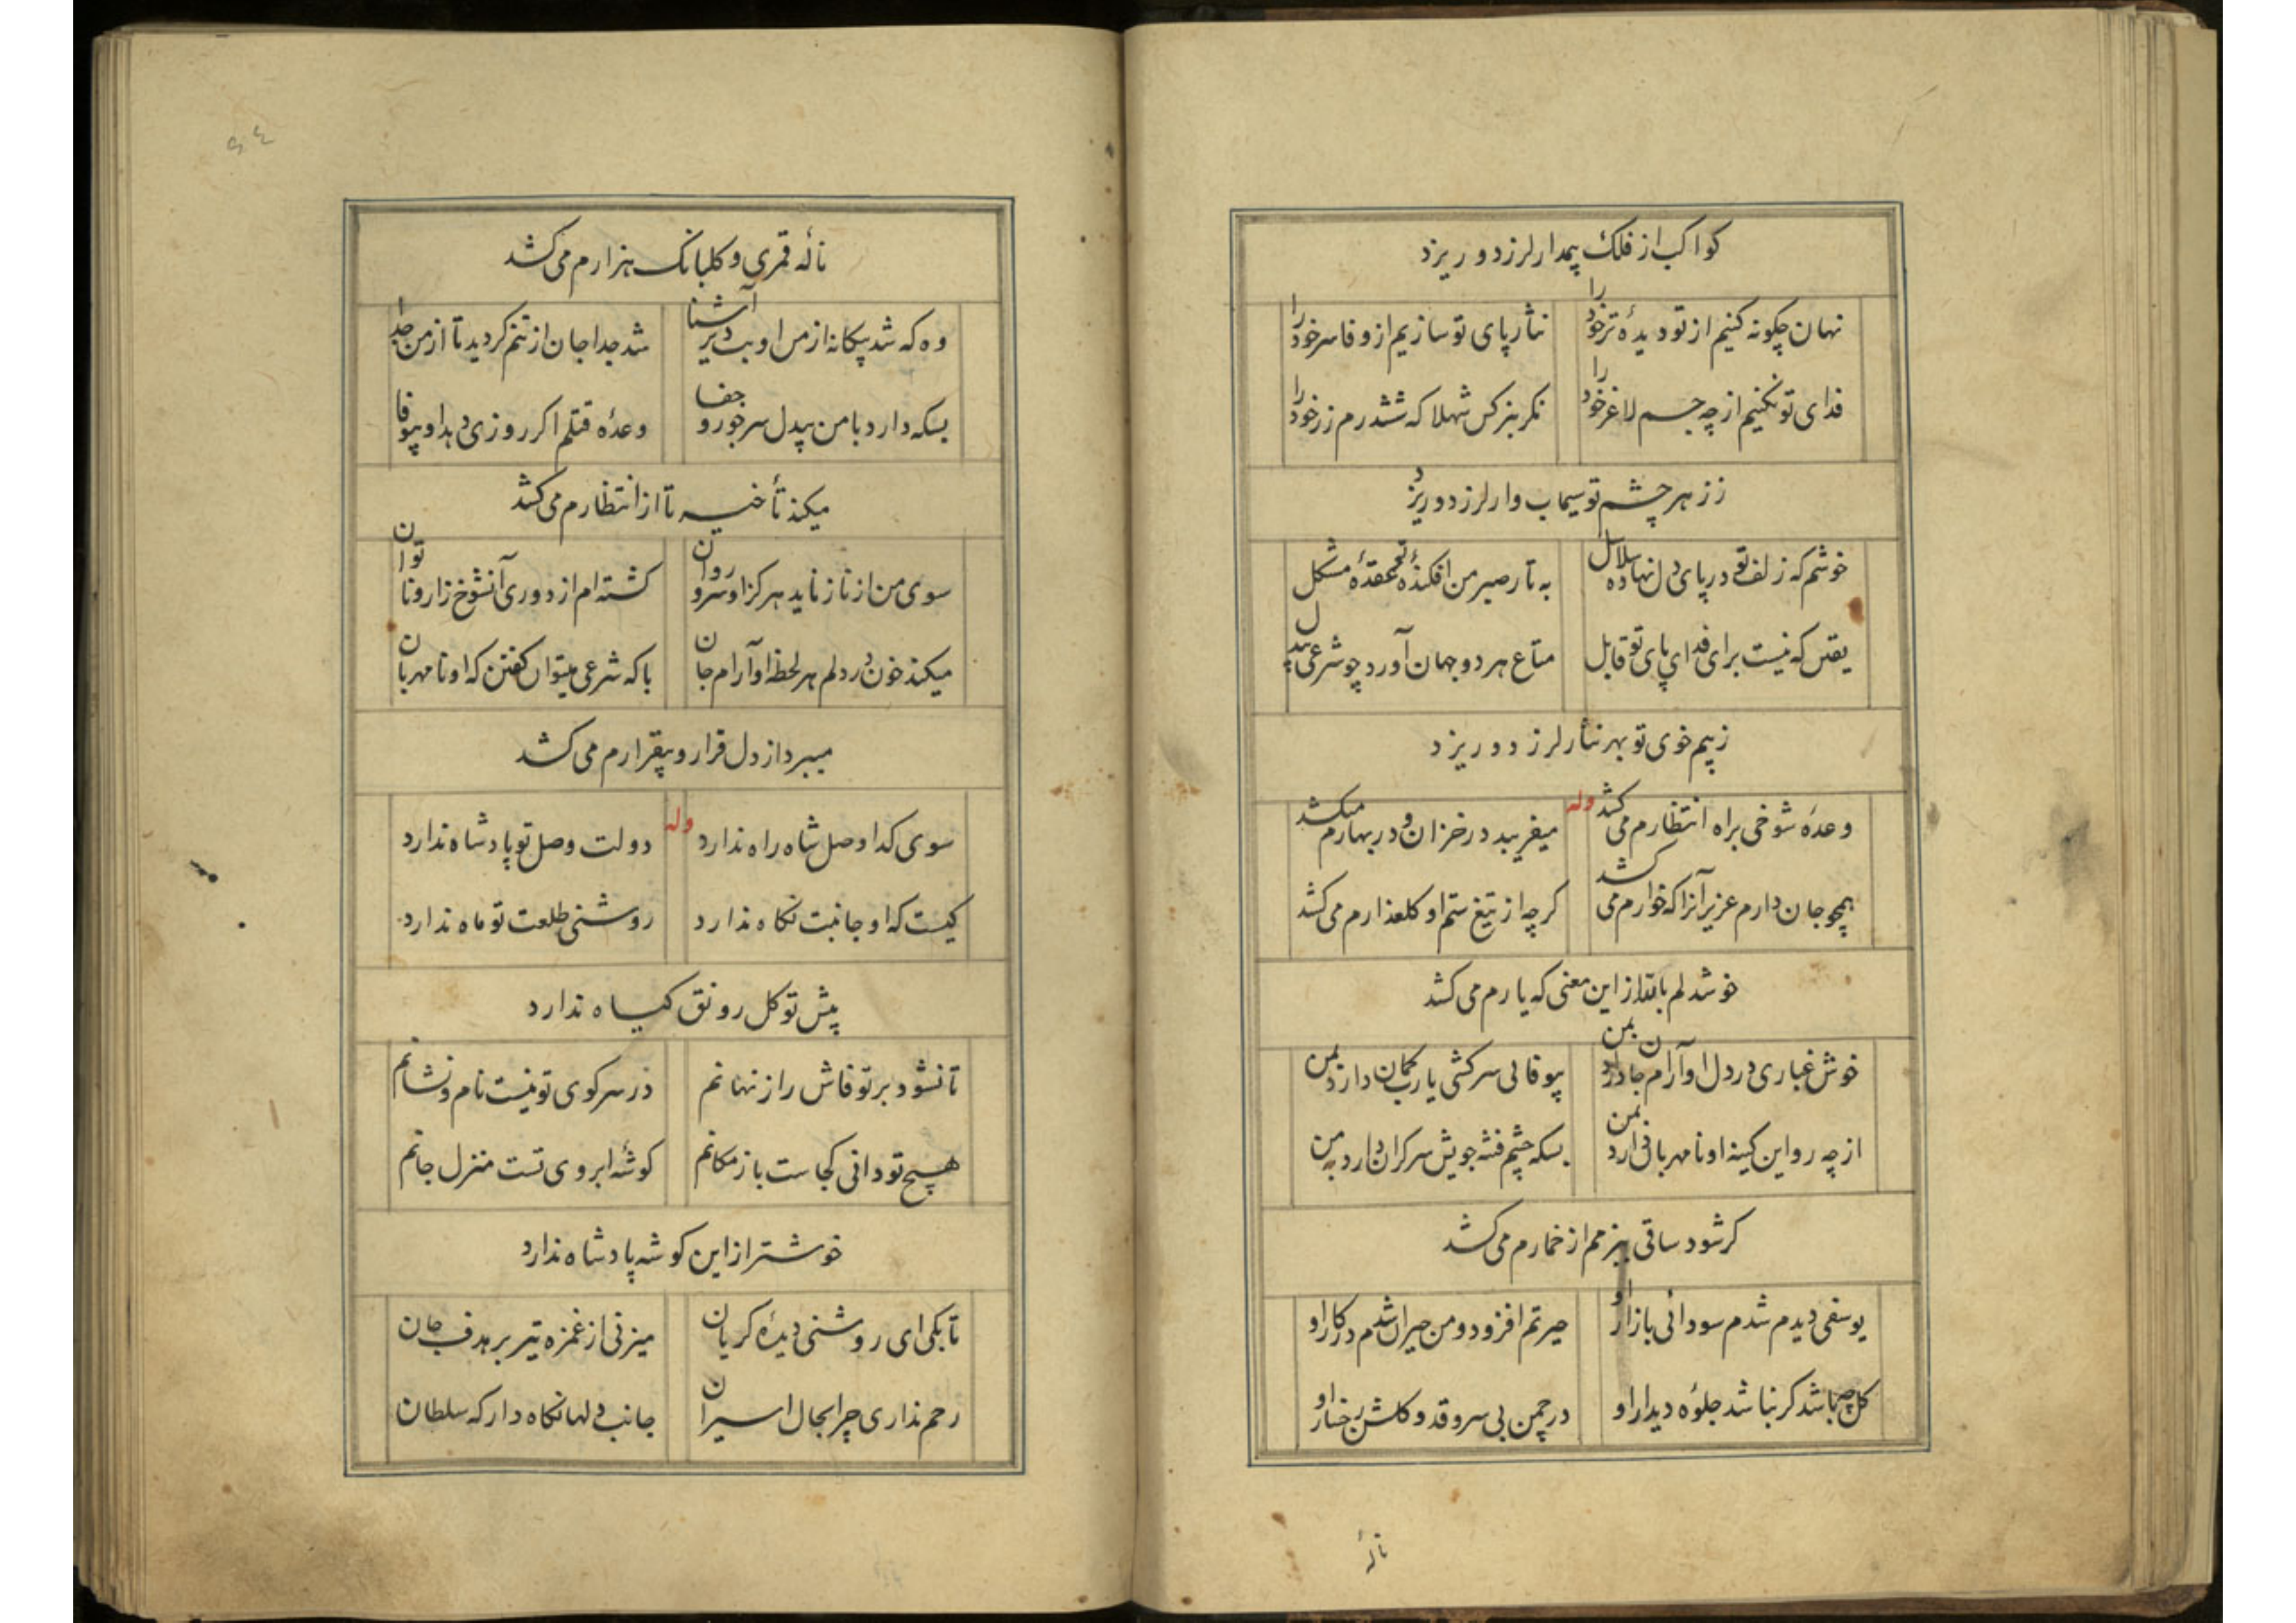 کواکب از فلک پیمدار لرزد و ریزد
نهان چکونه کنیم از تو دیدهٔ تر خود را نثار پای تو سازیم از وفا سر خود را
فدای تو نکنیم از چه جسم لاغر خود را نکر بنرکس شهلا که ششدرم زر خود را
ز زهر چشم تو سیماب وار لرزد و ریزد
خوشم که زلف تو در پای دل نهاده سلاسل به تار صبر من افکنده عقدهٔ مشکل
یقین که نیست برای فدای پای تو قابل متاع هر دو جهان آورد چو شرعی بیدل
ز بیم خوی تو بهر نثار لرزد و ریزد
وعدهٔ شوخی براه انتظارم می کشد وله میفریبد در خزان و در بهارم میکشد
همچو جان دارم عزیز آنرا که خوارم می کشد کر چه از تیغ ستم او کلعذارم می کشد
خوشدلم باللّه از این معنی که یارم می کشد
خوش غباری در دل او آرام جان دارد بمن بیوفایی سرکشی یا رب کمان دارد بمن
از چه رو این کینه او نامهربانی دارد بمن بسکه چشم فتنه جویش سرکران دارد بمن
کر شود ساقی ببزمم از خمارم می کشد
یوسفی دیدم شدم سودائی بازار او حیرتم افزود و من حیران شدم در کار او
کل چه باشد کر نباشد جلوهٔ دیدار او در چمن بی سرو قد و کلشن رخسار او
نالهٔ
نالهٔ قمری و کلبانک هزارم می کشد
وه که شد بیکانه از من او بت دیر آشنا شد جدا جان از تنم کردید تا از من جدا
بسکه دارد با من بیدل سر جور و جفا وعدهٔ قتلم اکر روزی دهد او بیوفا
میکند تأخیر تا از انتظارم می کشد
سوی من از ناز ناید هرکز او سرو روان کشته ام از دوری آنشوخ زار و ناتوان
میکند خون در دلم هر لحظه او آرام جان با که شرعی میتوان کفتن که او نامهربان
میبرد از دل قرار و بیقرارم می کشد
سوی کدا وصل شاه راه ندارد وله دولت وصل تو پادشاه ندارد
کیست که او جانبت نکاه ندارد روشنی طلعت تو ماه ندارد
پیش تو کل رونق کیاه ندارد
تا نشود بر تو فاش راز نهانم در سر کوی تو نیست نام و نشانم
هیچ تو دانی کجاست باز مکانم کوشهٔ ابروی تست منزل جانم
خوشتر از این کوشه پادشاه ندارد
تا بکی ای روشنی دیدهٔ کریان میزنی از غمزه تیر بر هدف جان
رحم نداری چرا بحال اسیران جانب دلها نکاه دار که سلطان